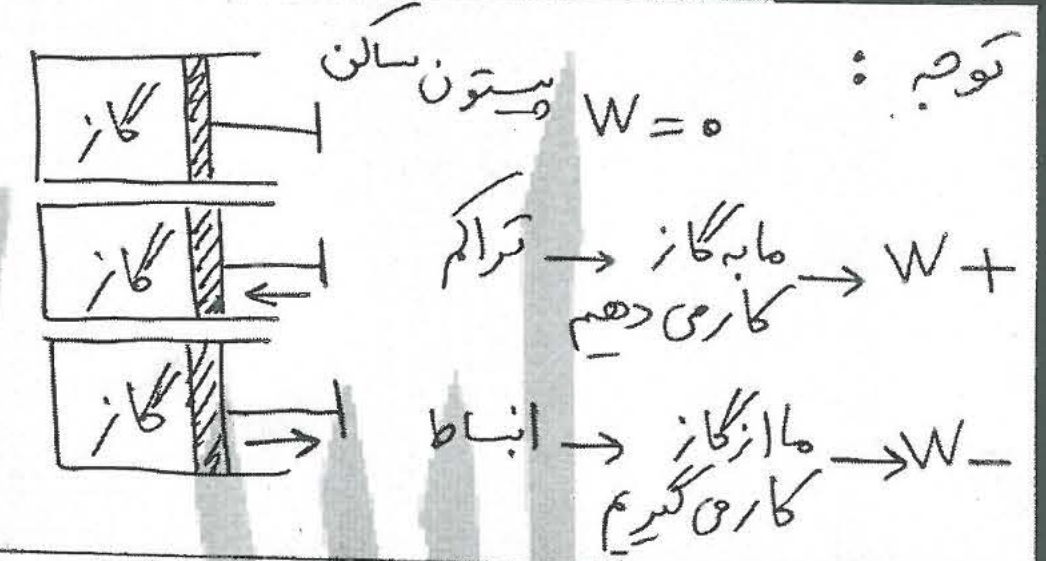 توجه :
گاز پیستون ساکن W = 0
گاز تراکم → ما به گاز کار می دهیم → W +
گاز انبساط → ما از گاز کار می گیریم → W −